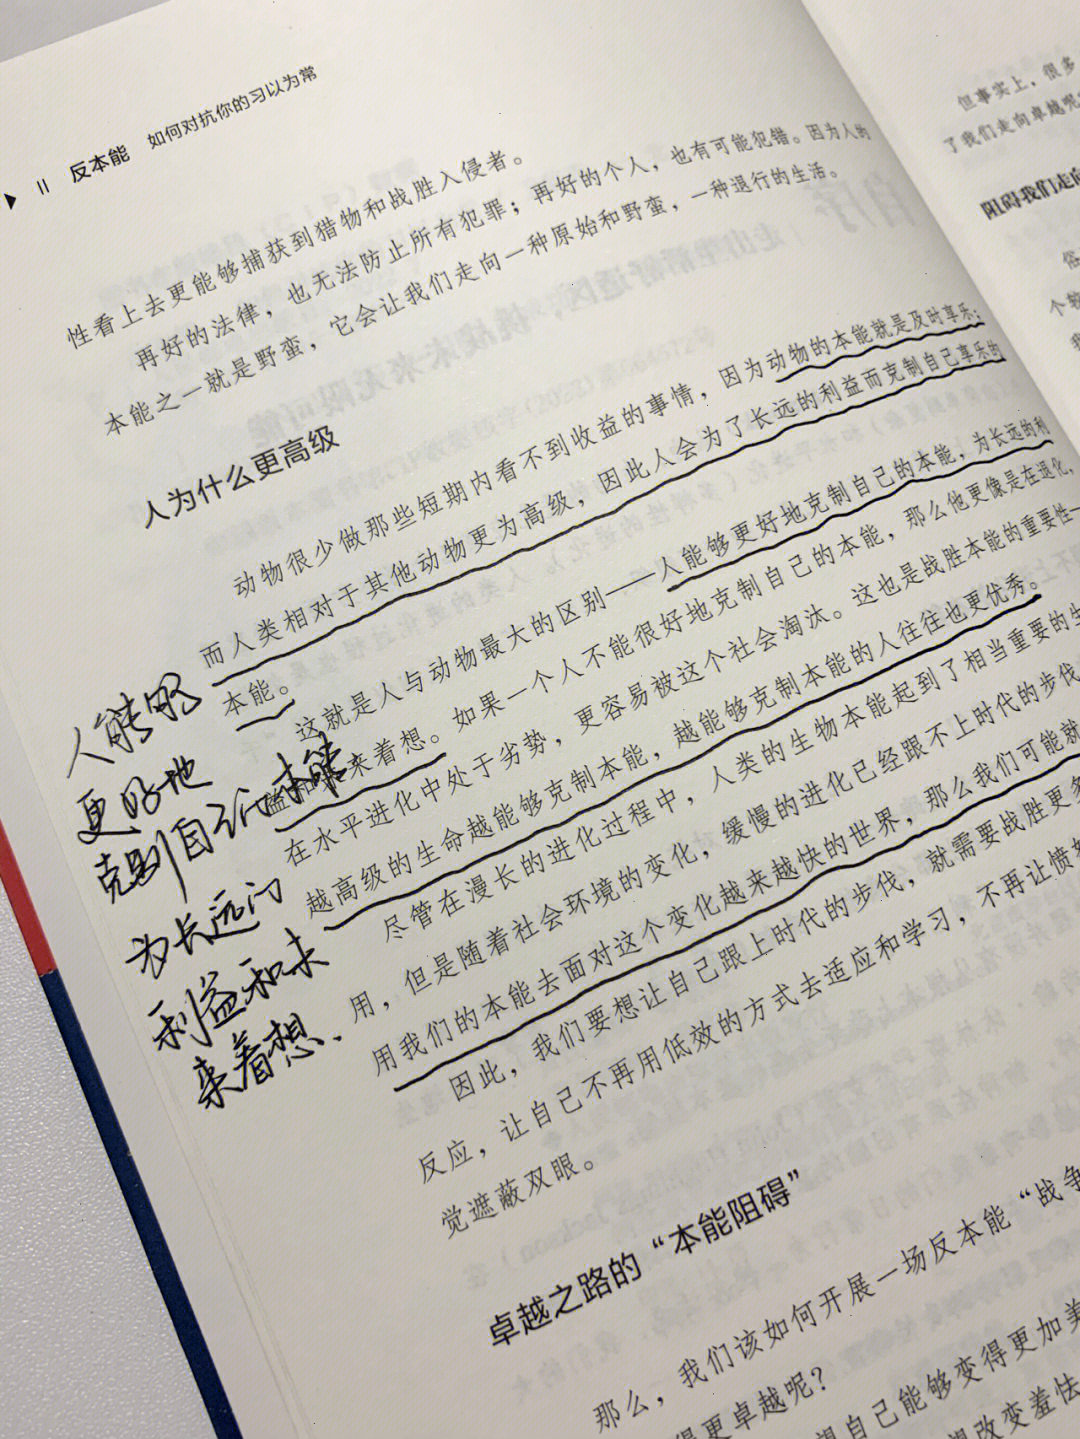 II 反本能 如何对抗你的习以为常
性看上去更能够捕获到猎物和战胜入侵者。
再好的法律，也无法防止所有犯罪；再好的个人，也有可能犯错。因为人的
本能之一就是野蛮，它会让我们走向一种原始和野蛮，一种退行的生活。
人为什么更高级
动物很少做那些短期内看不到收益的事情，因为动物的本能就是及时享乐；
而人类相对于其他动物更为高级，因此人会为了长远的利益而克制自己享乐的
本能。
这就是人与动物最大的区别——人能够更好地克制自己的本能，为长远的利
益和未来着想。如果一个人不能很好地克制自己的本能，那么他更像是在退化，
在水平进化中处于劣势，更容易被这个社会淘汰。这也是战胜本能的重要性——
越高级的生命越能够克制本能，越能够克制本能的人往往也更优秀。
尽管在漫长的进化过程中，人类的生物本能起到了相当重要的
用，但是随着社会环境的变化，缓慢的进化已经跟不上时代的步伐
用我们的本能去面对这个变化越来越快的世界，那么我们可能就
因此，我们要想让自己跟上时代的步伐，就需要战胜更多
反应，让自己不再用低效的方式去适应和学习，不再让愤怒
觉遮蔽双眼。
卓越之路的“本能阻碍”
那么，我们该如何开展一场反本能“战争
得更卓越呢？
自己能够变得更加美
想改变羞怯
人能够
更好地
克制自己的本能
为长远的
利益和未
来着想.
但事实上，很多
了我们走向卓越呢
阻碍我们走向
个